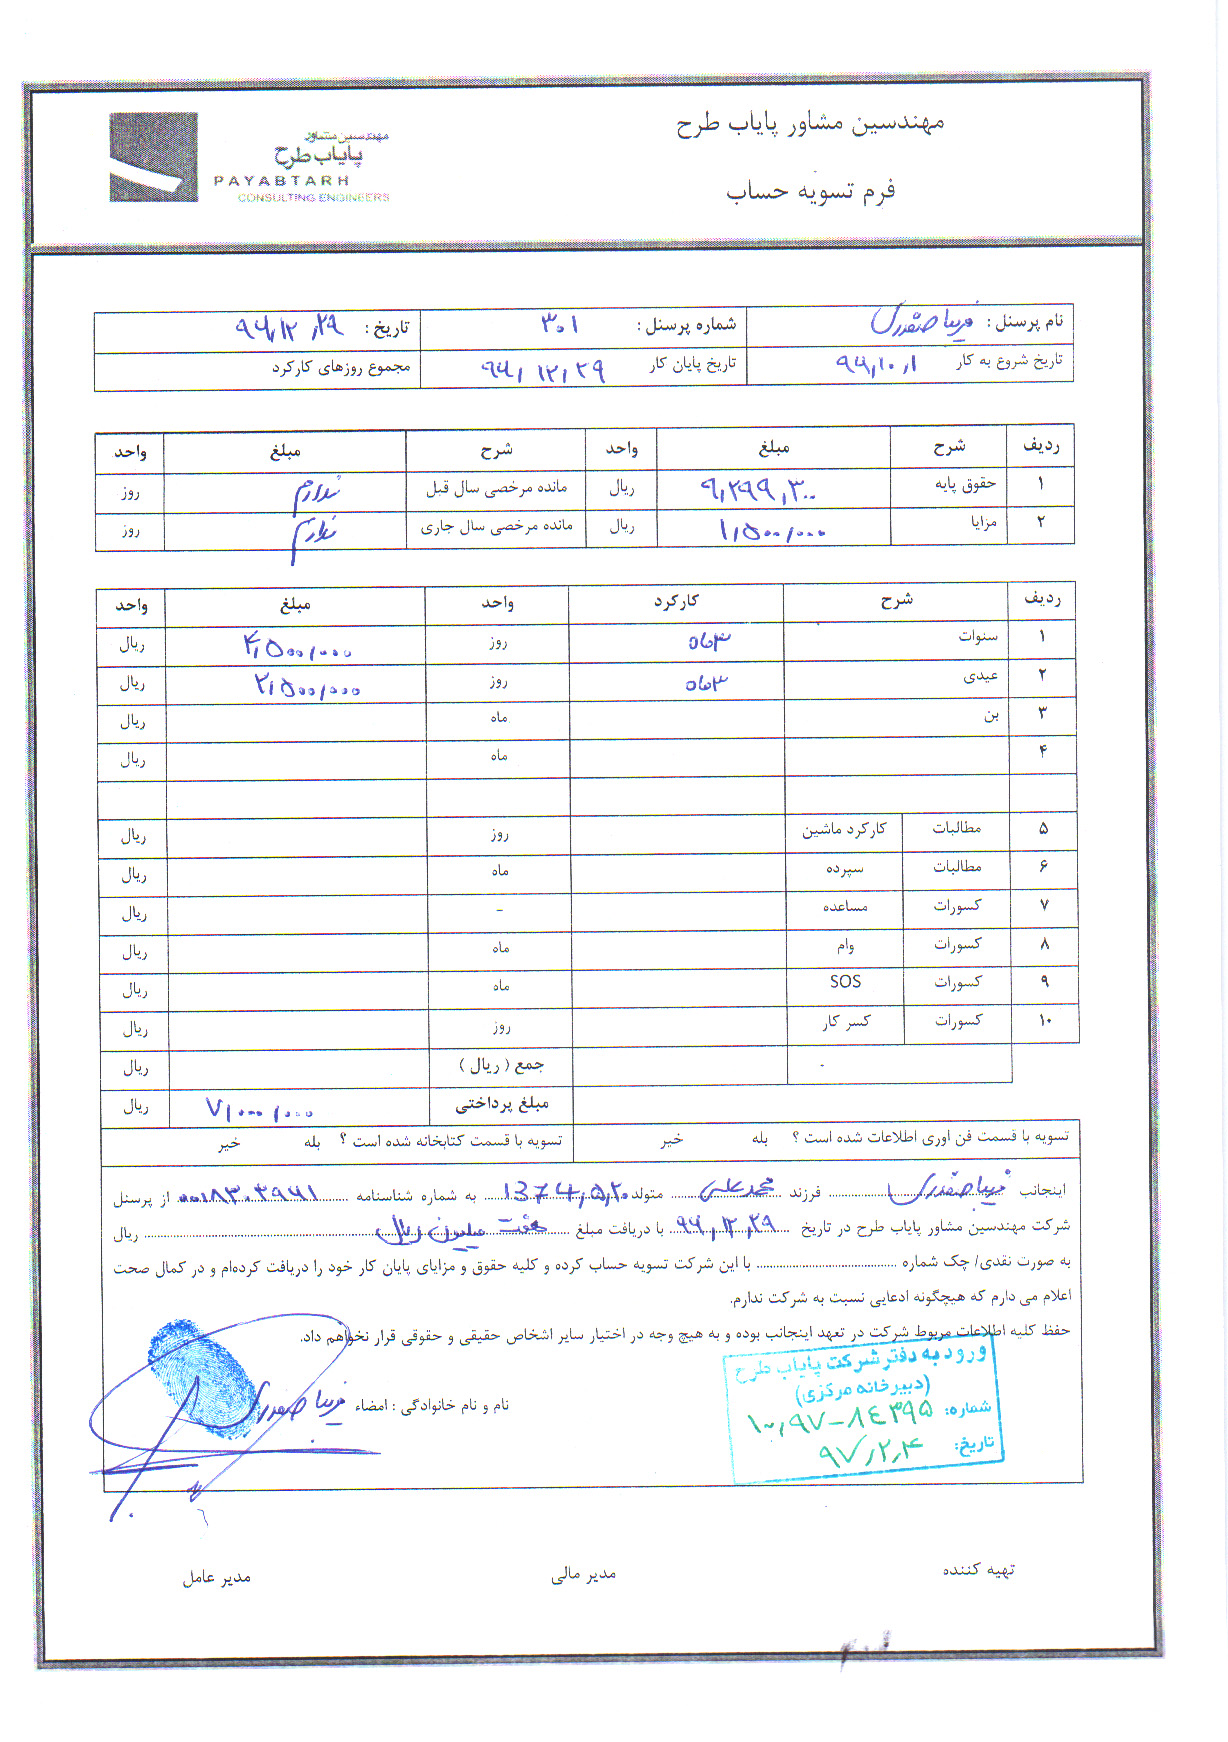 مهندسین مشاور پایاب طرح
فرم تسویه حساب
مهندسین مشاور
پایاب طرح
PAYABTARH
CONSULTING ENGINEERS
نام پرسنل : فریبا صفدری شماره پرسنل : ۳۰۱ تاریخ : ۹۶,۱۲,۲۹
تاریخ شروع به کار ۹۶,۱۰,۱ تاریخ پایان کار ۹۶,۱۲,۲۹ مجموع روزهای کارکرد
ردیف شرح مبلغ واحد شرح مبلغ واحد
۱ حقوق پایه ۹,۲۹۹,۳۰۰ ریال مانده مرخصی سال قبل ندارم روز
۲ مزایا ۱,۵۰۰/۰۰۰ ریال مانده مرخصی سال جاری ندارم روز
ردیف شرح کارکرد واحد مبلغ واحد
۱ سنوات روز ۴,۵۰۰/۰۰۰ ریال
۲ عیدی روز ۲,۵۰۰/۰۰۰ ریال
۳ بن ماه ریال
۴ ماه ریال
۵ مطالبات کارکرد ماشین روز ریال
۶ مطالبات سپرده ماه ریال
۷ کسورات مساعده - ریال
۸ کسورات وام ماه ریال
۹ کسورات SOS ماه ریال
۱۰ کسورات کسر کار روز ریال
- جمع ( ریال ) ریال
مبلغ پرداختی ۷,۰۰۰/۰۰۰ ریال
تسویه با قسمت فن اوری اطلاعات شده است ؟ بله خیر تسویه با قسمت کتابخانه شده است ؟ بله خیر
اینجانب فریبا صفدری فرزند محمدعلی متولد ۱۳۷۴,۵,۲۰ به شماره شناسنامه ۰۰۱۸۳۰۳۹۶۱ از پرسنل
شرکت مهندسین مشاور پایاب طرح در تاریخ ۹۶,۱۲,۲۹ با دریافت مبلغ هفت میلیون ریال ریال
به صورت نقدی/ چک شماره با این شرکت تسویه حساب کرده و کلیه حقوق و مزایای پایان کار خود را دریافت کرده‌ام و در کمال صحت
اعلام می دارم که هیچگونه ادعایی نسبت به شرکت ندارم.
حفظ کلیه اطلاعات مربوط شرکت در تعهد اینجانب بوده و به هیچ وجه در اختیار سایر اشخاص حقیقی و حقوقی قرار نخواهم داد.
نام و نام خانوادگی : امضاء فریبا صفدری
ورود به دفتر شرکت پایاب طرح
(دبیرخانه مرکزی)
شماره: ۱۰,۹۷-۸۴۳۹۵
تاریخ: ۹۷,۲,۴
تهیه کننده مدیر مالی مدیر عامل